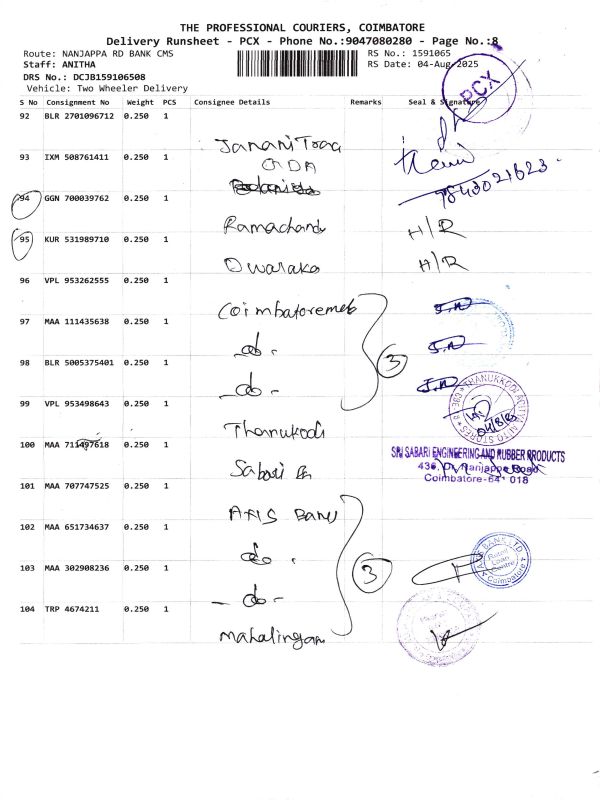 THE PROFESSIONAL COURIERS, COIMBATORE
Delivery Runsheet - PCX - Phone No.:9047080280 - Page No.:8
Route: NANJAPPA RD BANK CMS
RS No.: 1591065
Staff: ANITHA
RS Date: 04-Aug-2025
DRS No.: DCJB159106508
Vehicle: Two Wheeler Delivery
PCX
S No Consignment No Weight PCS Consignee Details Remarks Seal & Signature
92 BLR 2701096712 0.250 1
Janani Traa
93 IXM 508761411 0.250 1
ODA
9843021623
94 GGN 700039762 0.250 1
Ramachand H/R
95 KUR 531989710 0.250 1
Dwaraka H/R
96 VPL 953262555 0.250 1
Coimbatore
97 MAA 111435638 0.250 1
do.
3
98 BLR 5005375401 0.250 1
do.
99 VPL 953498643 0.250 1
Thanukodi
THANUKKODI AUTO STORES
CBE
100 MAA 711497618 0.250 1
Sabari
SRI SABARI ENGINEERING AND RUBBER PRODUCTS
Nanjappa Road
Coimbatore-641 018
101 MAA 707747525 0.250 1
AXIS Bank
102 MAA 651734637 0.250 1
do.
3
AXIS BANK LTD
Retail Loan Centre
Coimbatore
103 MAA 302908236 0.250 1
do-
104 TRP 4674211 0.250 1
Mahalingam